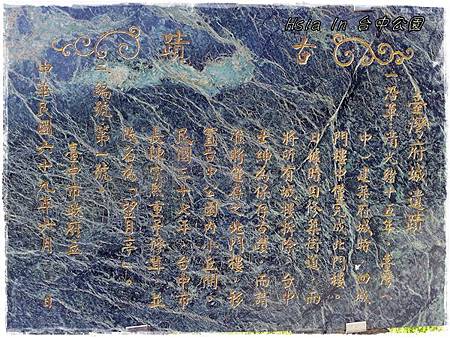 Hsia In 台中公園
古蹟
臺灣府城遺蹟
一、沿革：清光緒十五年，臺灣（
中）建築府城時，四城
門樓中僅完成北門樓。
日據時因修築街道，而
將所有城樓拆除，台中
士紳為保存古蹟，而請
准將僅存之北門樓，移
置台中公園內小丘間。
民國三十八年，台中市
長陳宗熙重予修葺，並
改名為「望月亭」。
二、編號：第一號。
臺中市政府立
中華民國六十九年六月 日